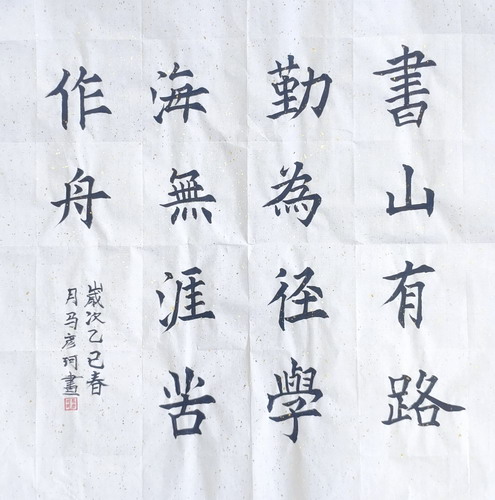 書山有路
勤為径學
海無涯苦
作舟
歲次乙巳春
月马彦珂書